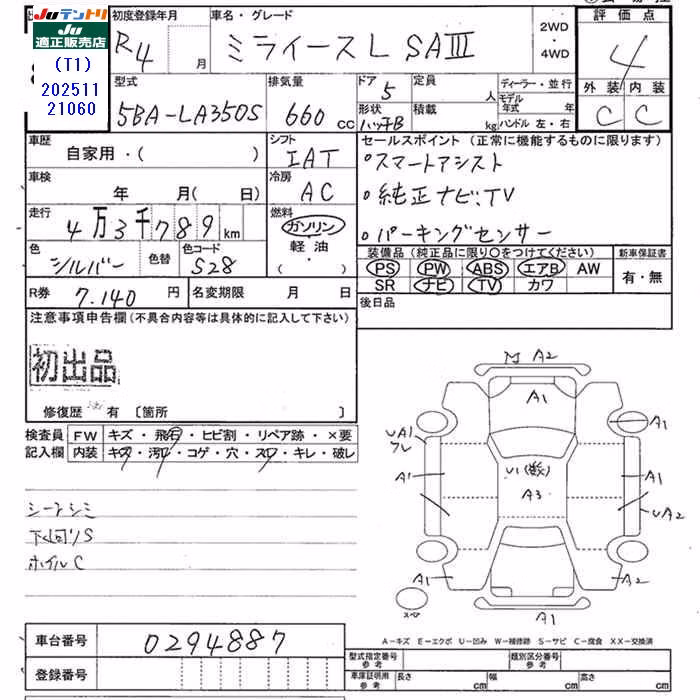 Juテントリ
JU適正販売店
(T1)
202511
21060
初度登録年月
R4 月
車名・グレード
ミライース L SAⅢ
2WD・4WD
評価点
4
型式
5BA-LA350S
排気量
660 cc
ドア 5
形状 ハッチB
定員 人
積載 kg
ディーラー・並行
モデル年式 年
ハンドル 左・右
外装 内装
C C
車歴
自家用・( )
シフト
IAT
車検
年 月( 日)
冷房
AC
走行
4万3千789km
燃料
ガソリン・軽油
( ・ )
色
シルバー
色替
色コード
S28
R券 7.140 円
名変期限 月 日
セールスポイント (正常に機能するものに限ります)
・スマートアシスト
・純正ナビ、TV
・パーキングセンサー
装備品 (純正品に限り〇をつけてください)
PS PW ABS エアB AW
SR ナビ TV カワ
新車保証書
有・無
後日品
注意事項申告欄 (不具合内容等は具体的に記入して下さい)
初出品
修復歴 有 〔箇所 〕
検査員記入欄
FW キズ・飛石・ヒビ割・リペア跡・×要
内装 キズ・汚れ・コゲ・穴・スレ・キレ・破レ
シートシミ
下回りS
ホイルC
M A2
A1
A1
UA1
フレ
A1
U1
A3
A1
UA2
A1
A2
A1
スペア
A-キズ E-エクボ U-凹み W-補修跡 S-サビ C-腐食 XX-交換済
車台番号 0294887
登録番号
型式指定番号 参考
類別区分番号 参考
車庫証明用 参考 長さ cm 幅 cm 高さ cm